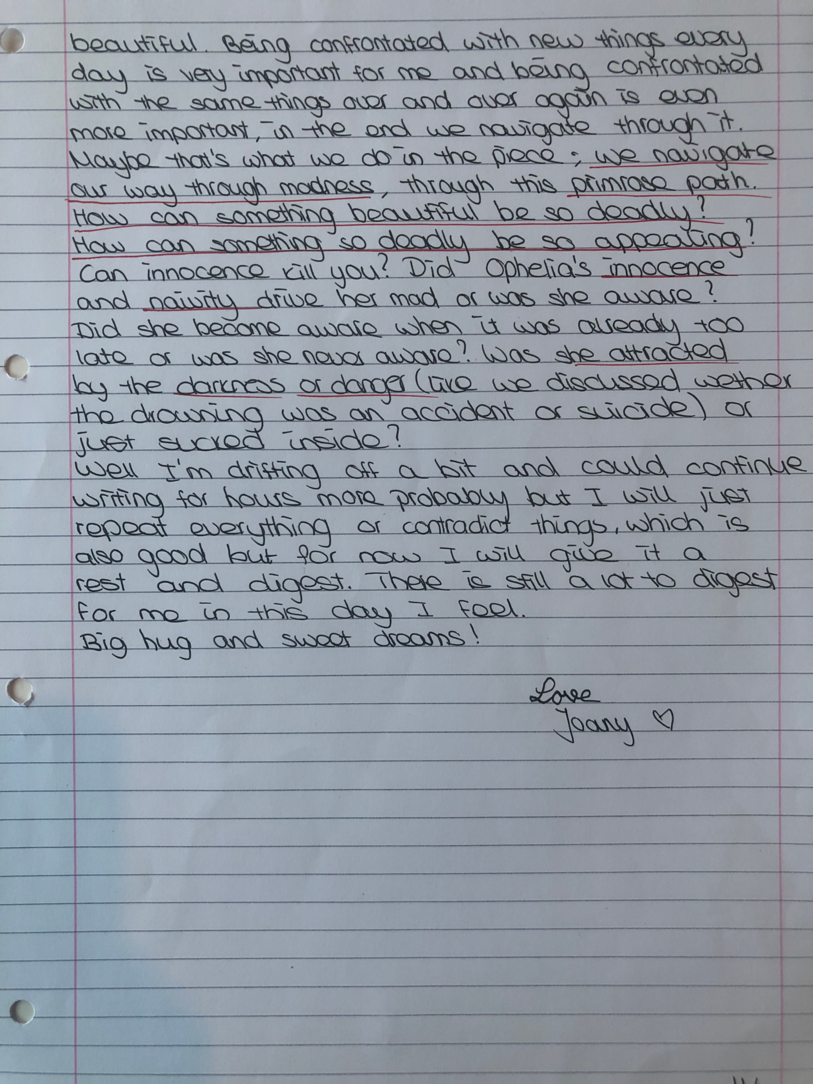 beautiful. Being confrontated with new things every
day is very important for me and being confrontated
with the same things over and over again is even
more important, in the end we navigate through it.
Maybe that's what we do in the piece; we navigate
our way through madness, through this primrose path.
How can something beautiful be so deadly?
How can something so deadly be so appealing?
Can innocence kill you? Did Ophelia's innocence
and naivity drive her mad or was she aware?
Did she become aware when it was already too
late or was she never aware? Was she attracted
by the darkness or danger (like we discussed wether
the drowning was an accident or suicide) or
just sucked inside?
Well I'm drifting off a bit and could continue
writing for hours more probably but I will just
repeat everything or contradict things, which is
also good but for now I will give it a
rest and digest. There is still a lot to digest
for me in this day I feel.
Big hug and sweet dreams!
Love
Joany ♡